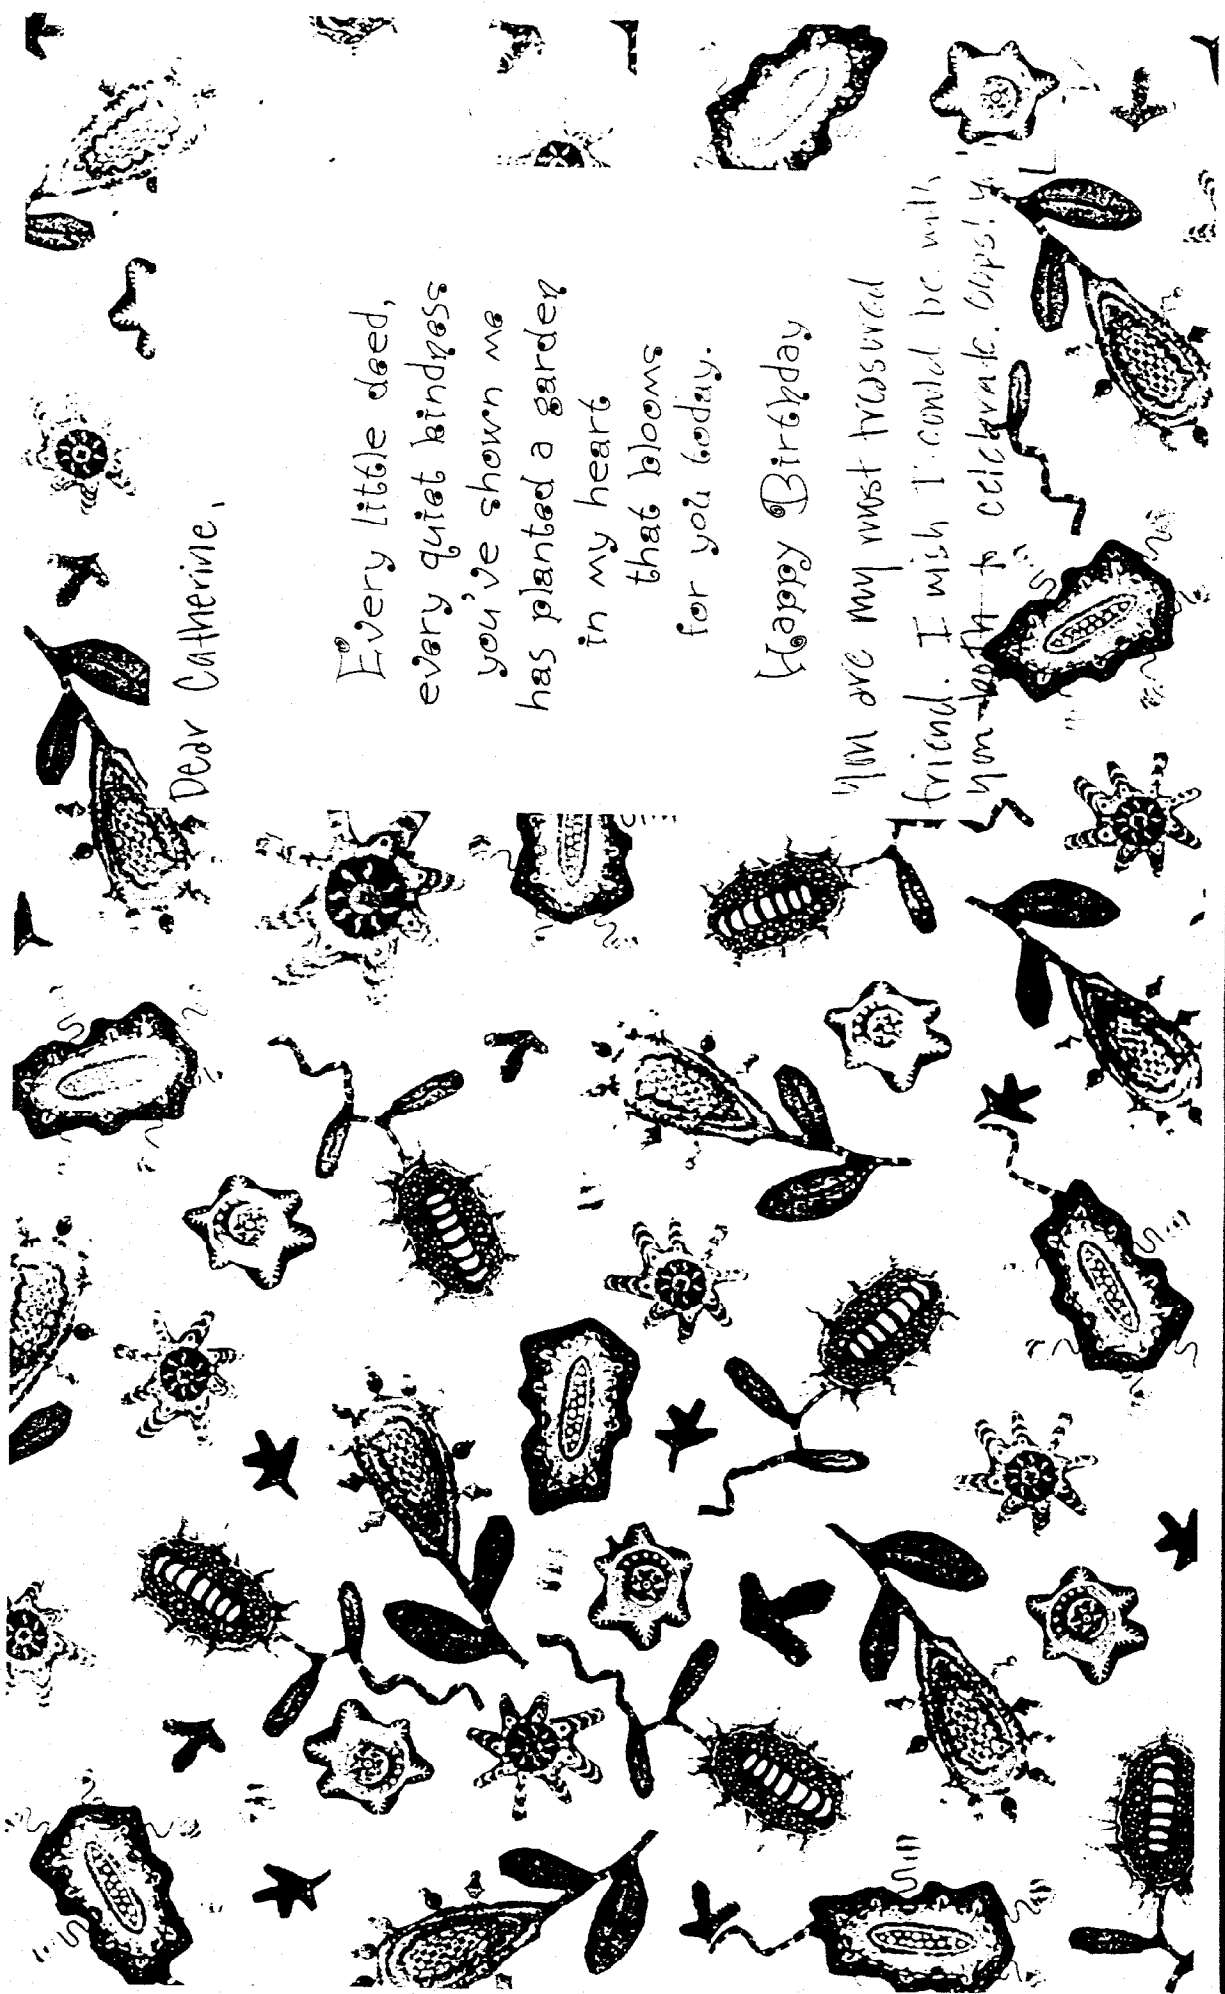 Dear Catherine,
Every little deed,
every quiet kindness
you've shown me
has planted a garden
in my heart
that blooms
for you today.
Happy Birthday
You are my most treasured
friend. I wish I could be with
you both to celebrate. Oops!